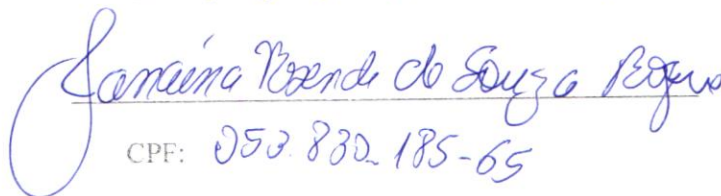 Janaina Rezende de Souza
CPF: 053.830.185-65